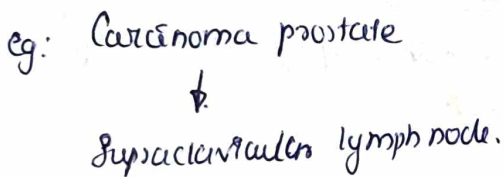 eg: Carcinoma prostate
↓
Supraclavicular lymph node.